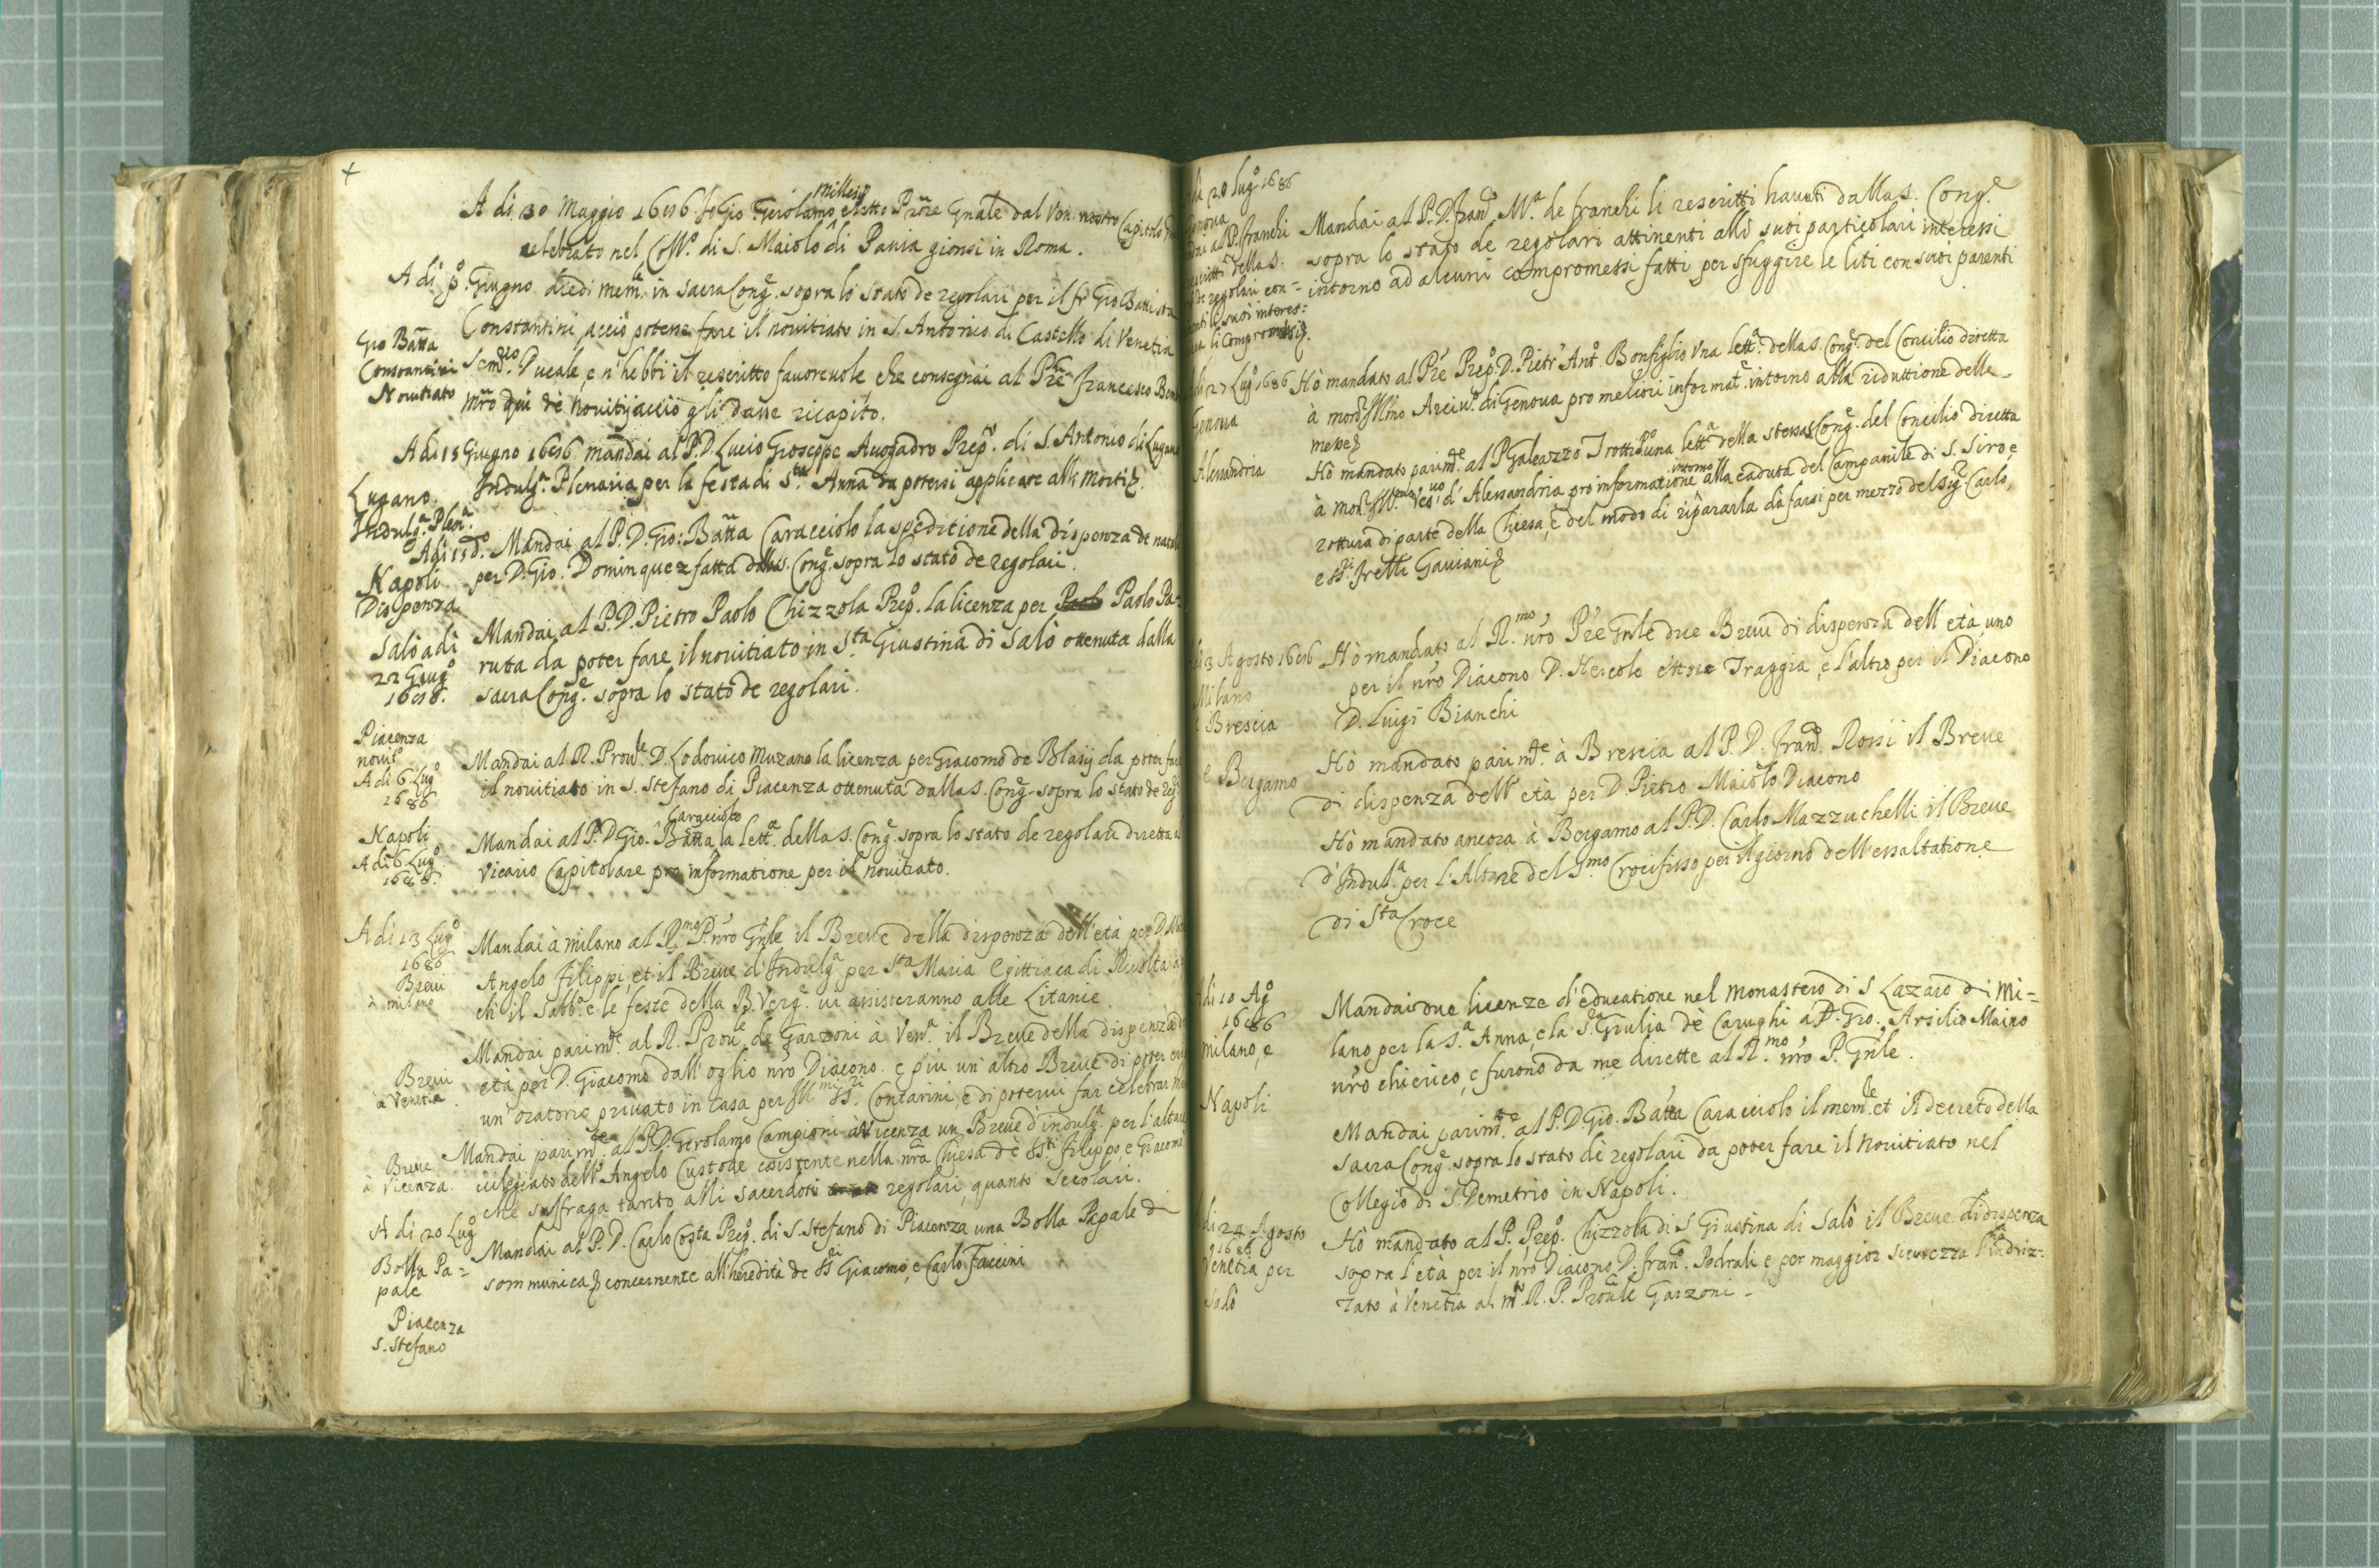 +
A di 30 Maggio 1686 Io Gio: Gerolamo Millesij eletto Prõre Gñale dal Ven. nostro Capitolo
celebrato nel Coll.º di S. Maiolo di Pavia gionsi in Roma.
A di pº. Giugno diedi mem.le in sacra Cong.e sopra lo stato de regolari per il fr. Gio Battista
Gio Batta
Constantini
Novitiato
Constantini, acciò potesse fare il novitiato in S. Antonio di Castello di Venetia
Sem.rio Ducale, e n'hebbi il rescritto favorevole che consegnai al Pre Francesco
mro qui dè Novitij acciò gli dasse ricapito.
A di 15 Giugno 1686 mandai al P.D. Lucio Gioseppe Avogadro Prep.to di S. Antonio di Lugano
Lugano.
Indulg.a Plen.a
Indulg.a Plenaria per la festa di S.ta Anna da potersi applicare alli morti.
A di 15 dº. Mandai al P.D. Gio: Batta Caracciolo la speditione della dispenza de natali
Napoli
Dispenza
per D. Gio. Dominquez fatta dalla s. Cong.e sopra lo stato de regolari.
Salò a di
22 Giug.º
1686.
Mandai al P.D. Pietro Paolo Chizzola Prep.º la licenza per Paolo Pa-
ruta da poter fare il novitiato in S.ta Giustina di Salò ottenuta dalla
sacra Cong.e sopra lo stato de regolari.
Piacenza
novit.º
A di 6 Lug.º
1686
Mandai al R. Prov.le D. Lodovico Muzano la licenza per Giacomo de Blasij da poter fare
il novitiato in S. Stefano di Piacenza ottenuta dalla s. Cong.e sopra lo stato de
Napoli
A di 6 Lug.º
1686.
Mandai al P.D. Gio. Batta Caracciolo la lett.a della s. Cong.e sopra lo stato de regolari diretta al
Vicario Capitolare pro informatione per il novitiato.
A di 13 Lug.º
1686
Brevi
à milano
Mandai à milano al R.mo P. nro Gñle il Breve della dispenza dell'età per D.
Angelo Filippi, et il Breve d'Indulg.a per S.ta Maria Egittiaca di Rivolta
ch il Sabb.º e le feste della B. Verg.e vi assisteranno alle Litanie.
Brevi
à Venetia
Mandai parim.te al R. Prov.le de Garzoni à Ven.a il Breve della dispenza
età per D. Giacomo dall'oglio nro Diacono. e più un'altro Breve di poter
un'oratorio privato in casa per Ill.mi SS.ri Contarini, e di potervi far celebrar
Breve
à Vicenza.
Mandai parim.te al P.D. Gerolamo Campioni à Vicenza un Breve d'indulg.a per l'altare
vilegiato dell'Angelo Custode esistente nella nra Chiesa de SS.ti Filippo e Giacomo
che suffraga tanto alli sacerdoti regolari, quanto secolari.
A di 20 Lug.º
Bolla Pa=
pale
Piacenza
S. Stefano
Mandai al P.D. Carlo Costa Prep.º di S. Stefano di Piacenza una Bolla Papale di
sommunica concernente all'heredità de SS.ri Giacomo, e Carlo Faccini
di 20 Lug.º 1686
Genova
al P. Franchi
della S.
de regolari con=
suoi interes=
li Compromessi.
Mandai al P.D. Fran.co M.a de Franchi li rescritti havuti dalla S. Cong.e
sopra lo stato de regolari attinenti alli suoi particolari interessi
intorno ad alcuni compromessi fatti per sfuggire le liti con suoi parenti
di 27 Lug.º 1686
Genova
Hò mandato al Pre Prep.º D. Pietr'Ant.º Bonfiglio una lett.a della S. Cong.e del Concilio diretta
à mons.r Ill.mo Arciv.º di Genova pro meliori informat.e intorno alla riduttione delle
messe
Alessandria
Hò mandato parim.te al P. Galeazzo Trotti una lett.a della stessa S. Cong.e del Concilio diretta
à mon.r Ves.vo d'Alessandria pro informatione intorno alla caduta del Campanile di S. Siro, e
rottura di parte della Chiesa, e del modo di ripararla da farsi per mezzo del Sig.r Carlo,
e SS.ri Fretti Gaviani
di 3 Agosto 1686
Milano
Brescia
Hò mandato al R.mo nro Pre Gñle due Brevi di dispenza dell'età, uno
per il nro Diacono D. Hercole ettore Traggia, e l'altro per il Diacono
D. Luigi Bianchi
e Bergamo
Hò mandato parim.te à Brescia al P.D. Fran.co Rossi il Breve
di dispenza dell'età per D. Pietro Maiolo Diacono
Hò mandato ancora à Bergamo al P.D. Carlo Mazzuchelli il Breve
d'Indul.a per l'Altare del S.mo Crocifisso per il giorno dell'essaltatione
di S.ta Croce
Adi 10 Ag.º
1686
Milano, e
Mandai due licenze d'educatione nel monastero di S Lazaro di Mi=
lano per la S.a Anna, e la S.a Giulia dè Carughi a D. Gio. Arsilio Maino
nro chierico, e furono da me dirette al R.mo nro P. Gñle.
Napoli
Mandai parim.te al P.D. Gio. Batta Caracciolo il mem.le et il decreto della
sacra Cong.e sopra lo stato dè regolari da poter fare il Novitiato nel
Collegio di S. Demetrio in Napoli.
di 24 Agosto
1686
Venetia per
Salò
Hò mandato al P. Prep.º Chizzola di S Giustina di Salò il Breve di dispenza
sopra l'età per il nro Diacono D. Fran.co Pedrali e per maggior sicurezza l'indriz=
zato à Venetia al m.to R. P. Prov.le Garzoni -